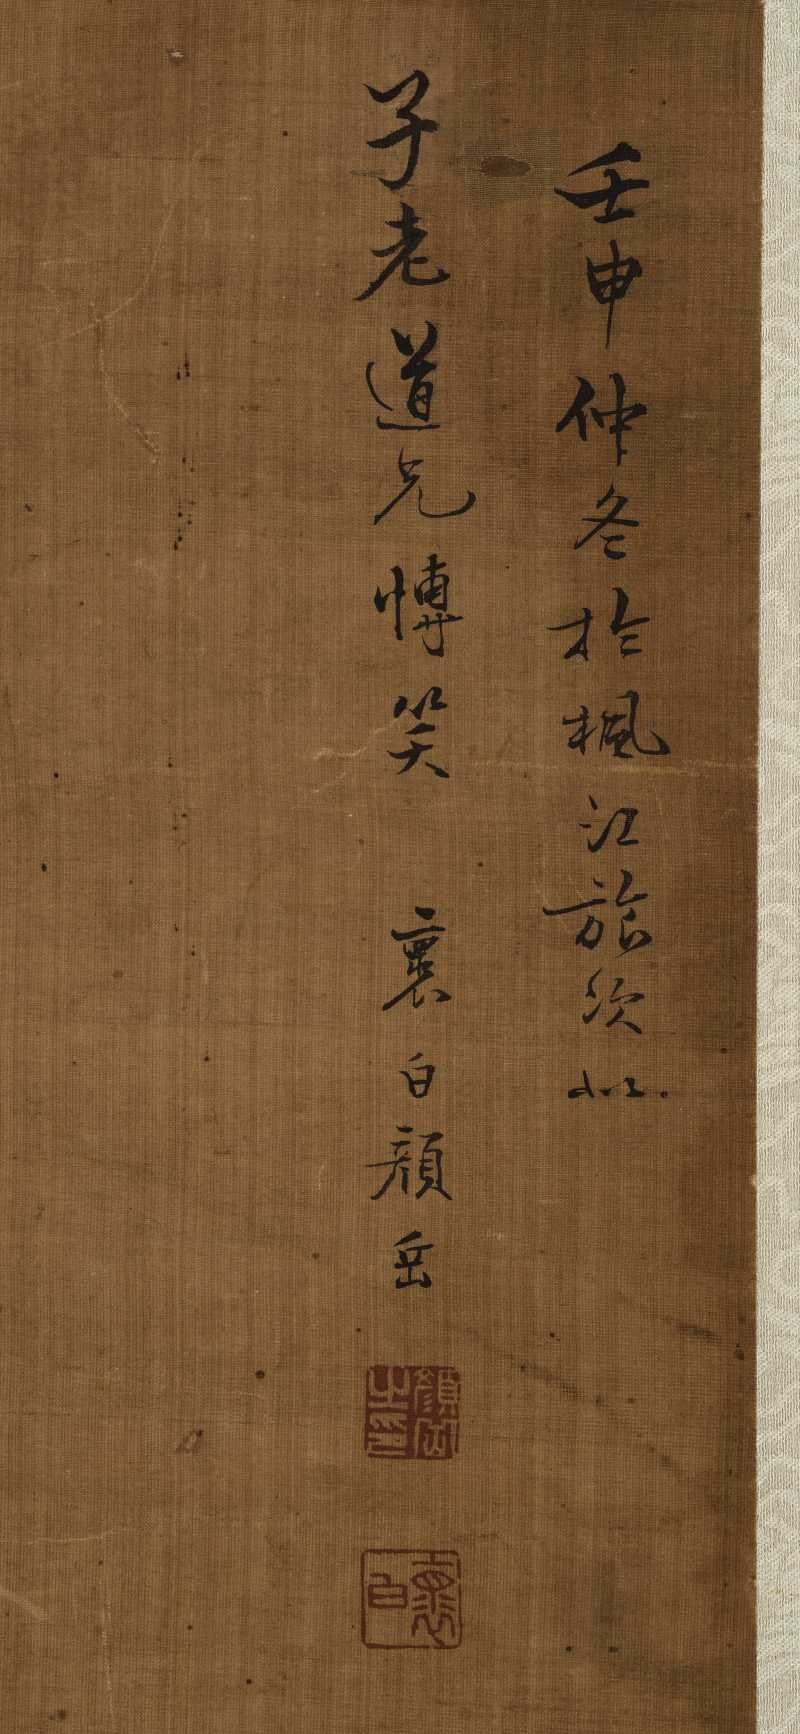 壬申仲冬於楓江旅次似
子老道兄愽笑 褱白顏岳
顏岳之印
褱白